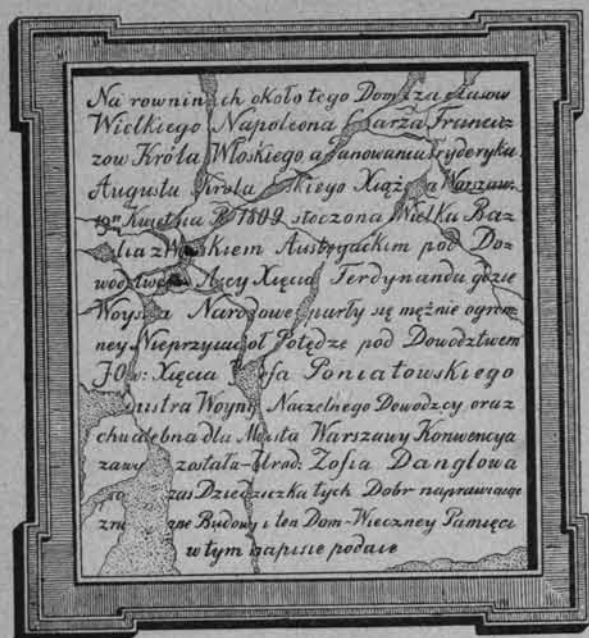 Na rownin ch około tego Dom za czasow
Wielkiego Napoleona C arza Francuz=
zow Króla Włoskiego a Panowania Fryderyka
Augusta Krola skiego Xiąż a Warszaw:
19n Kwietnia R 1809 stoczona Wielka Ba=
lia z W skiem Austryackim pod Do=
wodztwem Arcy Xięcia Ferdynanda gdzie
Woyska Narodowe parły się mężnie ogrom=
ney Nieprzyiacioł Potędze pod Dowodztwem
JOw: Xięcia J efa Poniatowskiego
nistra Woyny Naczelnego Dowodzcy oraz
chwalebna dla Miasta Warszawy Konwencya
zawa została Urod: Zofia Danglowa
zas Dziedziczka tych Dobr naprawiaiąc
zn ne Budowy i ten Dom Wieczney Pamięci
w tym napisie podaie